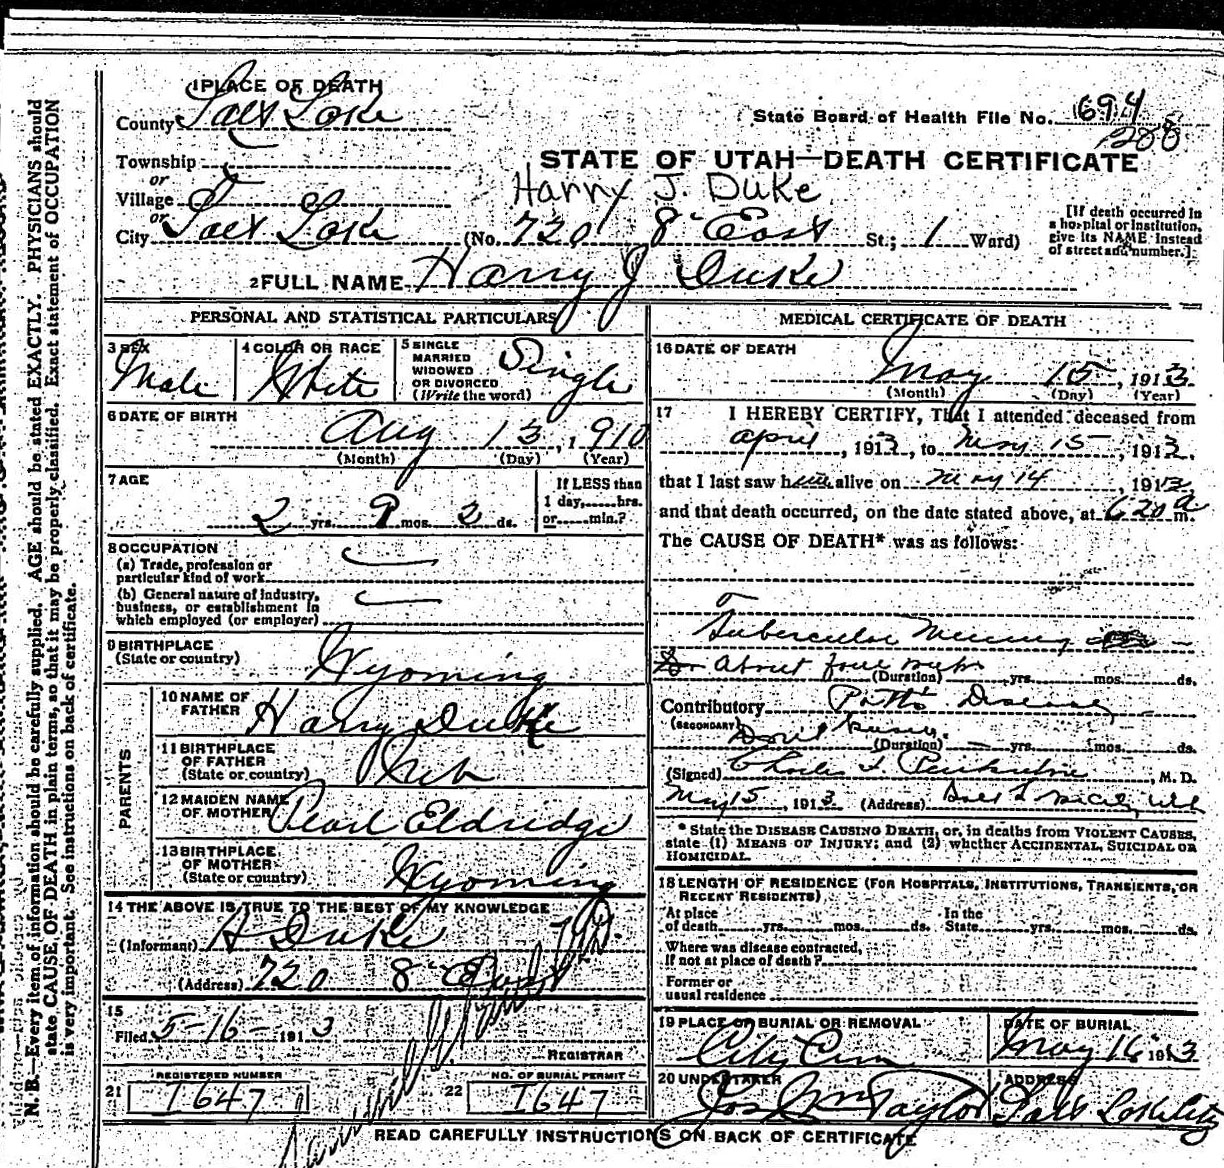 1 PLACE OF DEATH
County Salt Lake
State Board of Health File No. 694
288
Township
or
Village
or
City Salt Lake
STATE OF UTAH—DEATH CERTIFICATE
Harry J. Duke
(No. 720 8" East St.; 1 Ward)
[If death occurred in
a hospital or institution,
give its NAME instead
of street and number.]
2 FULL NAME Harry J Duke
PERSONAL AND STATISTICAL PARTICULARS
3 SEX
Male
4 COLOR OR RACE
White
5 SINGLE
MARRIED
WIDOWED
OR DIVORCED
(Write the word)
Single
6 DATE OF BIRTH
Aug 13, 1910
(Month) (Day) (Year)
7 AGE
2 yrs. 9 mos. 2 ds.
If LESS than
1 day,......hrs.
or......min.?
8 OCCUPATION
(a) Trade, profession or
particular kind of work
(b) General nature of industry,
business, or establishment in
which employed (or employer)
9 BIRTHPLACE
(State or country)
Wyoming
PARENTS
10 NAME OF
FATHER
Harry Duke
11 BIRTHPLACE
OF FATHER
(State or country)
Neb
12 MAIDEN NAME
OF MOTHER
Pearl Eldridge
13 BIRTHPLACE
OF MOTHER
(State or country)
Wyoming
14 THE ABOVE IS TRUE TO THE BEST OF MY KNOWLEDGE
(Informant) H Duke
(Address) 720 8" East
15
Filed 5-16- 1913
REGISTRAR
21 REGISTERED NUMBER
I647
22 NO. OF BURIAL PERMIT
I647
MEDICAL CERTIFICATE OF DEATH
16 DATE OF DEATH
May 15, 1913
(Month) (Day) (Year)
17 I HEREBY CERTIFY, That I attended deceased from
April, 1913, to May 15, 1913,
that I last saw him alive on May 14, 1913
and that death occurred, on the date stated above, at 620 a m.
The CAUSE OF DEATH* was as follows:
Tubercular
About four weeks
(Duration) yrs. mos. ds.
Contributory Potts Disease
(SECONDARY)
(Duration) yrs. mos. ds.
(Signed) Charles M. D.
May 15, 1913 (Address) Salt L
* State the DISEASE CAUSING DEATH, or, in deaths from VIOLENT CAUSES,
state (1) MEANS OF INJURY; and (2) whether ACCIDENTAL, SUICIDAL OR
HOMICIDAL.
18 LENGTH OF RESIDENCE (FOR HOSPITALS, INSTITUTIONS, TRANSIENTS, OR
RECENT RESIDENTS)
At place
of death yrs. mos. ds.
In the
State yrs. mos. ds.
Where was disease contracted,
If not at place of death?
Former or
usual residence
19 PLACE OF BURIAL OR REMOVAL
City Cem
DATE OF BURIAL
May 16 1913
20 UNDERTAKER
Jos Wm Taylor
ADDRESS
Salt Lake City
READ CAREFULLY INSTRUCTIONS ON BACK OF CERTIFICATE
N. B.—Every item of information should be carefully supplied. AGE should be stated EXACTLY. PHYSICIANS should
state CAUSE OF DEATH in plain terms, so that it may be properly classified. Exact statement of OCCUPATION
is very important. See instructions on back of certificate.